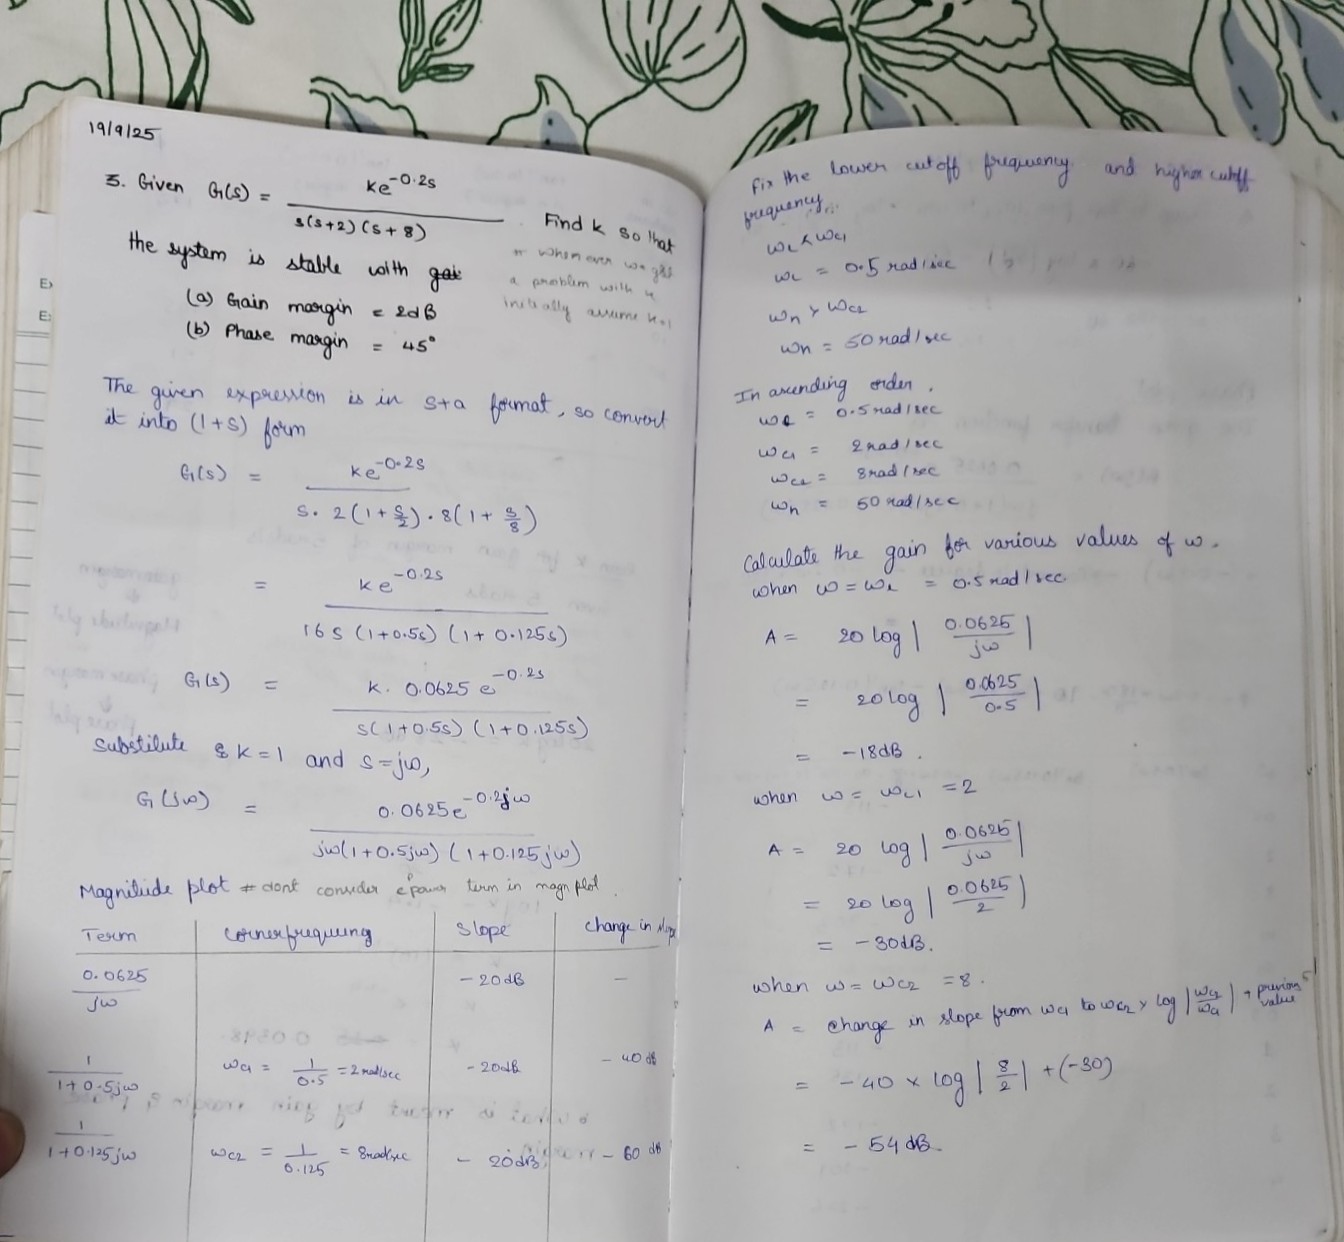 19/9/25
3. Given G(s) = ke^-0.2s / s(s+2)(s+8) . Find k so that
the system is stable with gai
(a) Gain margin = 2dB
(b) Phase margin = 45°
* whenever we get
a problem with k
initially assume k=1
The given expression is in s+a format, so convert
it into (1+s) form
G(s) = ke^-0.2s / s. 2(1+s/2).8(1+s/8)
= ke^-0.2s / 16s(1+0.5s)(1+0.125s)
G(s) = k. 0.0625 e^-0.2s / s(1+0.5s)(1+0.125s)
Substitute k=1 and s=jω,
G(jω) = 0.0625e^-0.2jω / jω(1+0.5jω)(1+0.125jω)
Magnitude plot * dont consider e power term in magn plot.
Term cornerfrequeing slope change in slope
0.0625/jω -20dB —
1/1+0.5jω ωc1 = 1/0.5 = 2rad/sec -20dB -40dB
1/1+0.125jω ωc2 = 1/0.125 = 8rad/sec - 20dB - 60 dB
Fix the lower cutoff frequency and higher cutoff
frequency
ωL < ωc1
ωL = 0.5 rad/sec
ωn > ωc2
ωn = 50 rad/sec
In asending order.
ωL = 0.5 rad/sec
ωc1 = 2rad/sec
ωc2 = 8rad/sec
ωn = 50 rad/sec
Calculate the gain for various values of ω.
when ω = ωL = 0.5 rad/sec
A = 20 log | 0.0625/jω |
= 20log | 0.0625/0.5 |
= -18dB.
when ω = ωc1 = 2
A = 20 log | 0.0625/jω |
= 20 log | 0.0625/2 |
= -30dB.
when ω = ωc2 = 8.
A = change in slope from ωc1 to ωc2 × log | | + previous value
= -40 × log | 8/2 | + (-30)
= - 54 dB.